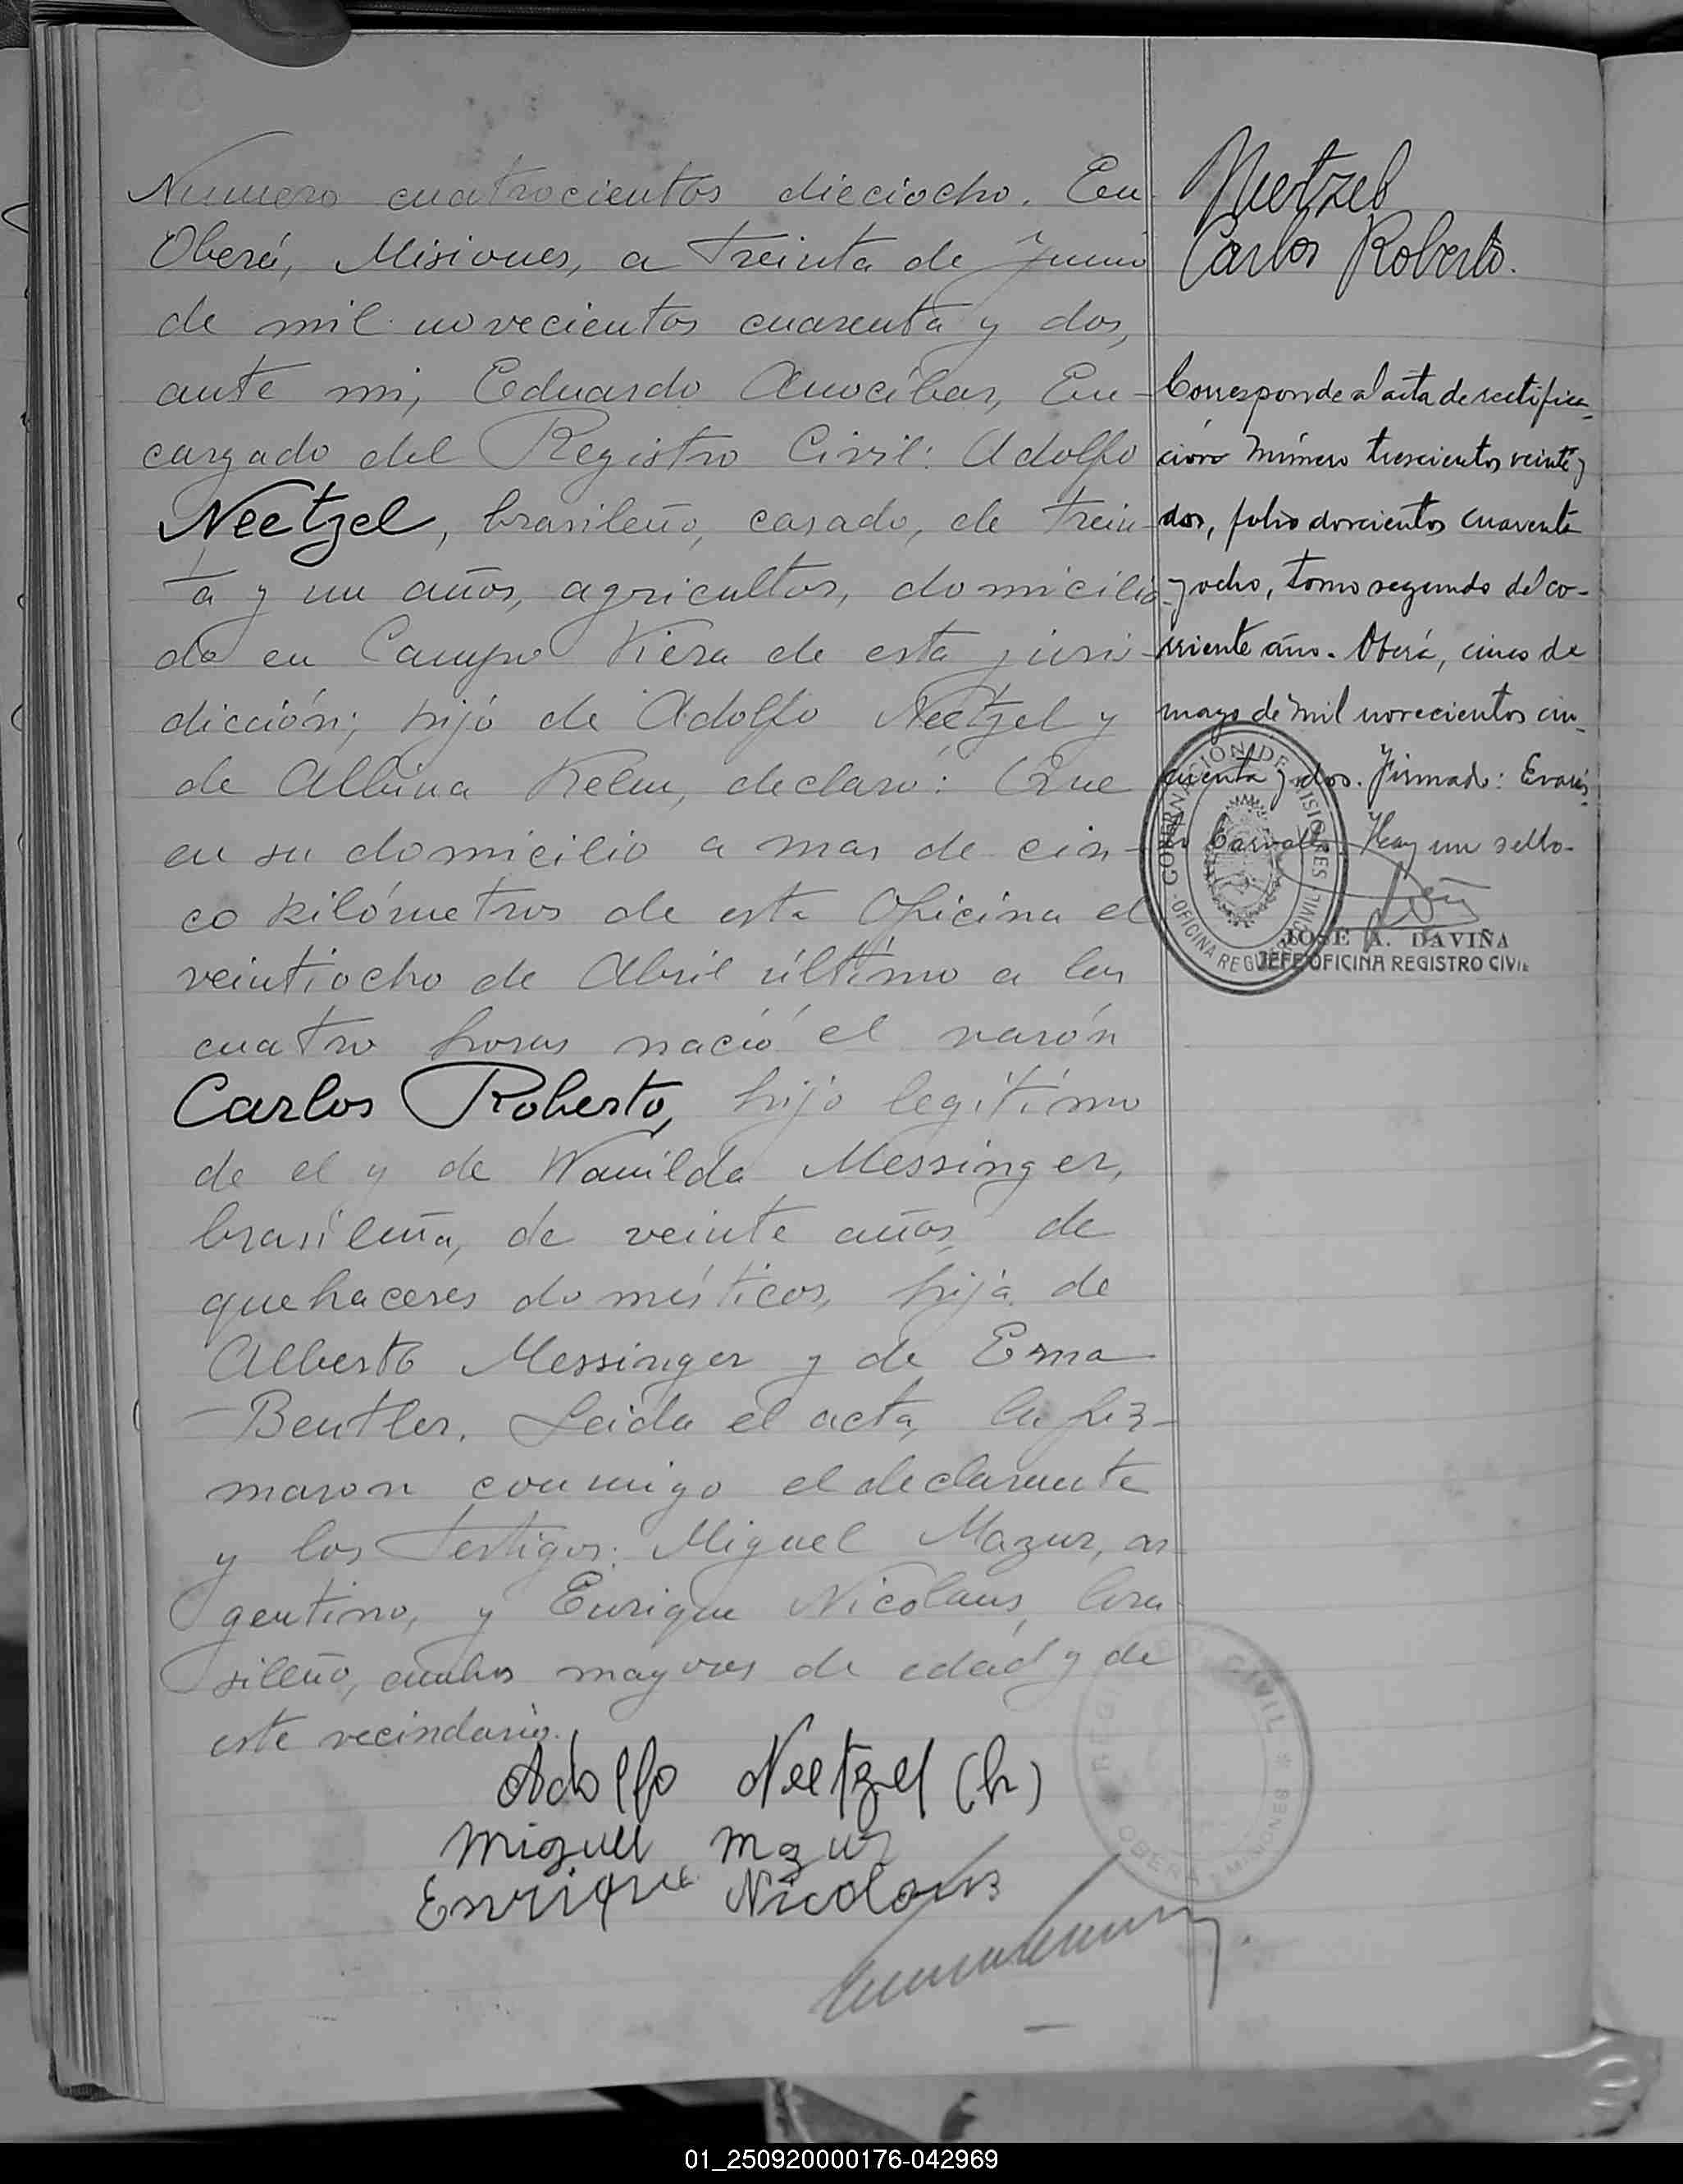 Numero cuatrocientos dieciocho. En
Oberá, Misiones, a treinta de Junio
de mil novecientos cuarenta y dos,
ante mi, Eduardo Anocibar, En-
cargado del Registro Civil: Adolfo
Neetzel, brasileño, casado, de trein-
ta y un años, agricultor, domicilia-
do en Campo Viera de esta juris-
dicción; hijo de Adolfo Neetzel y
de Albina Kelm, declaró: Que
en su domicilio a mas de cin-
co kilómetros de esta Oficina el
veintiocho de Abril último a las
cuatro horas nació el varón
Carlos Roberto, hijo legítimo
de el y de Wanilda Messinger,
brasileña, de veinte años, de
quehaceres domésticos, hija de
Alberto Messinger y de Erna
Beutler. Leida el acta, la fir-
maron conmigo el declarante
y los testigos: Miguel Mazur, ar
gentino, y Enrique Nicolaus, bra
sileño, ambos mayores de edad y de
este vecindario.
Adolfo Neetzel (h)
Miguel Mazur
Enrique Nicolaus
Neetzel
Carlos Roberto.
Corresponde al acta de rectifica-
ción número trescientos veinte y
dos, folio doscientos cuarenta
y ocho, tomo segundo del co-
rriente año. Oberá, cinco de
mayo de mil novecientos cin-
cuenta y dos. Firmado: Evaris-
to Carvallo. Hay un sello-
GOBERNACIÓN DE MISIONES
OFICINA REGISTRO CIVIL
JOSÉ A. DAVIÑA
JEFE OFICINA REGISTRO CIVIL
REGISTRO CIVIL * OBERÁ (MISIONES)
01_250920000176-042969